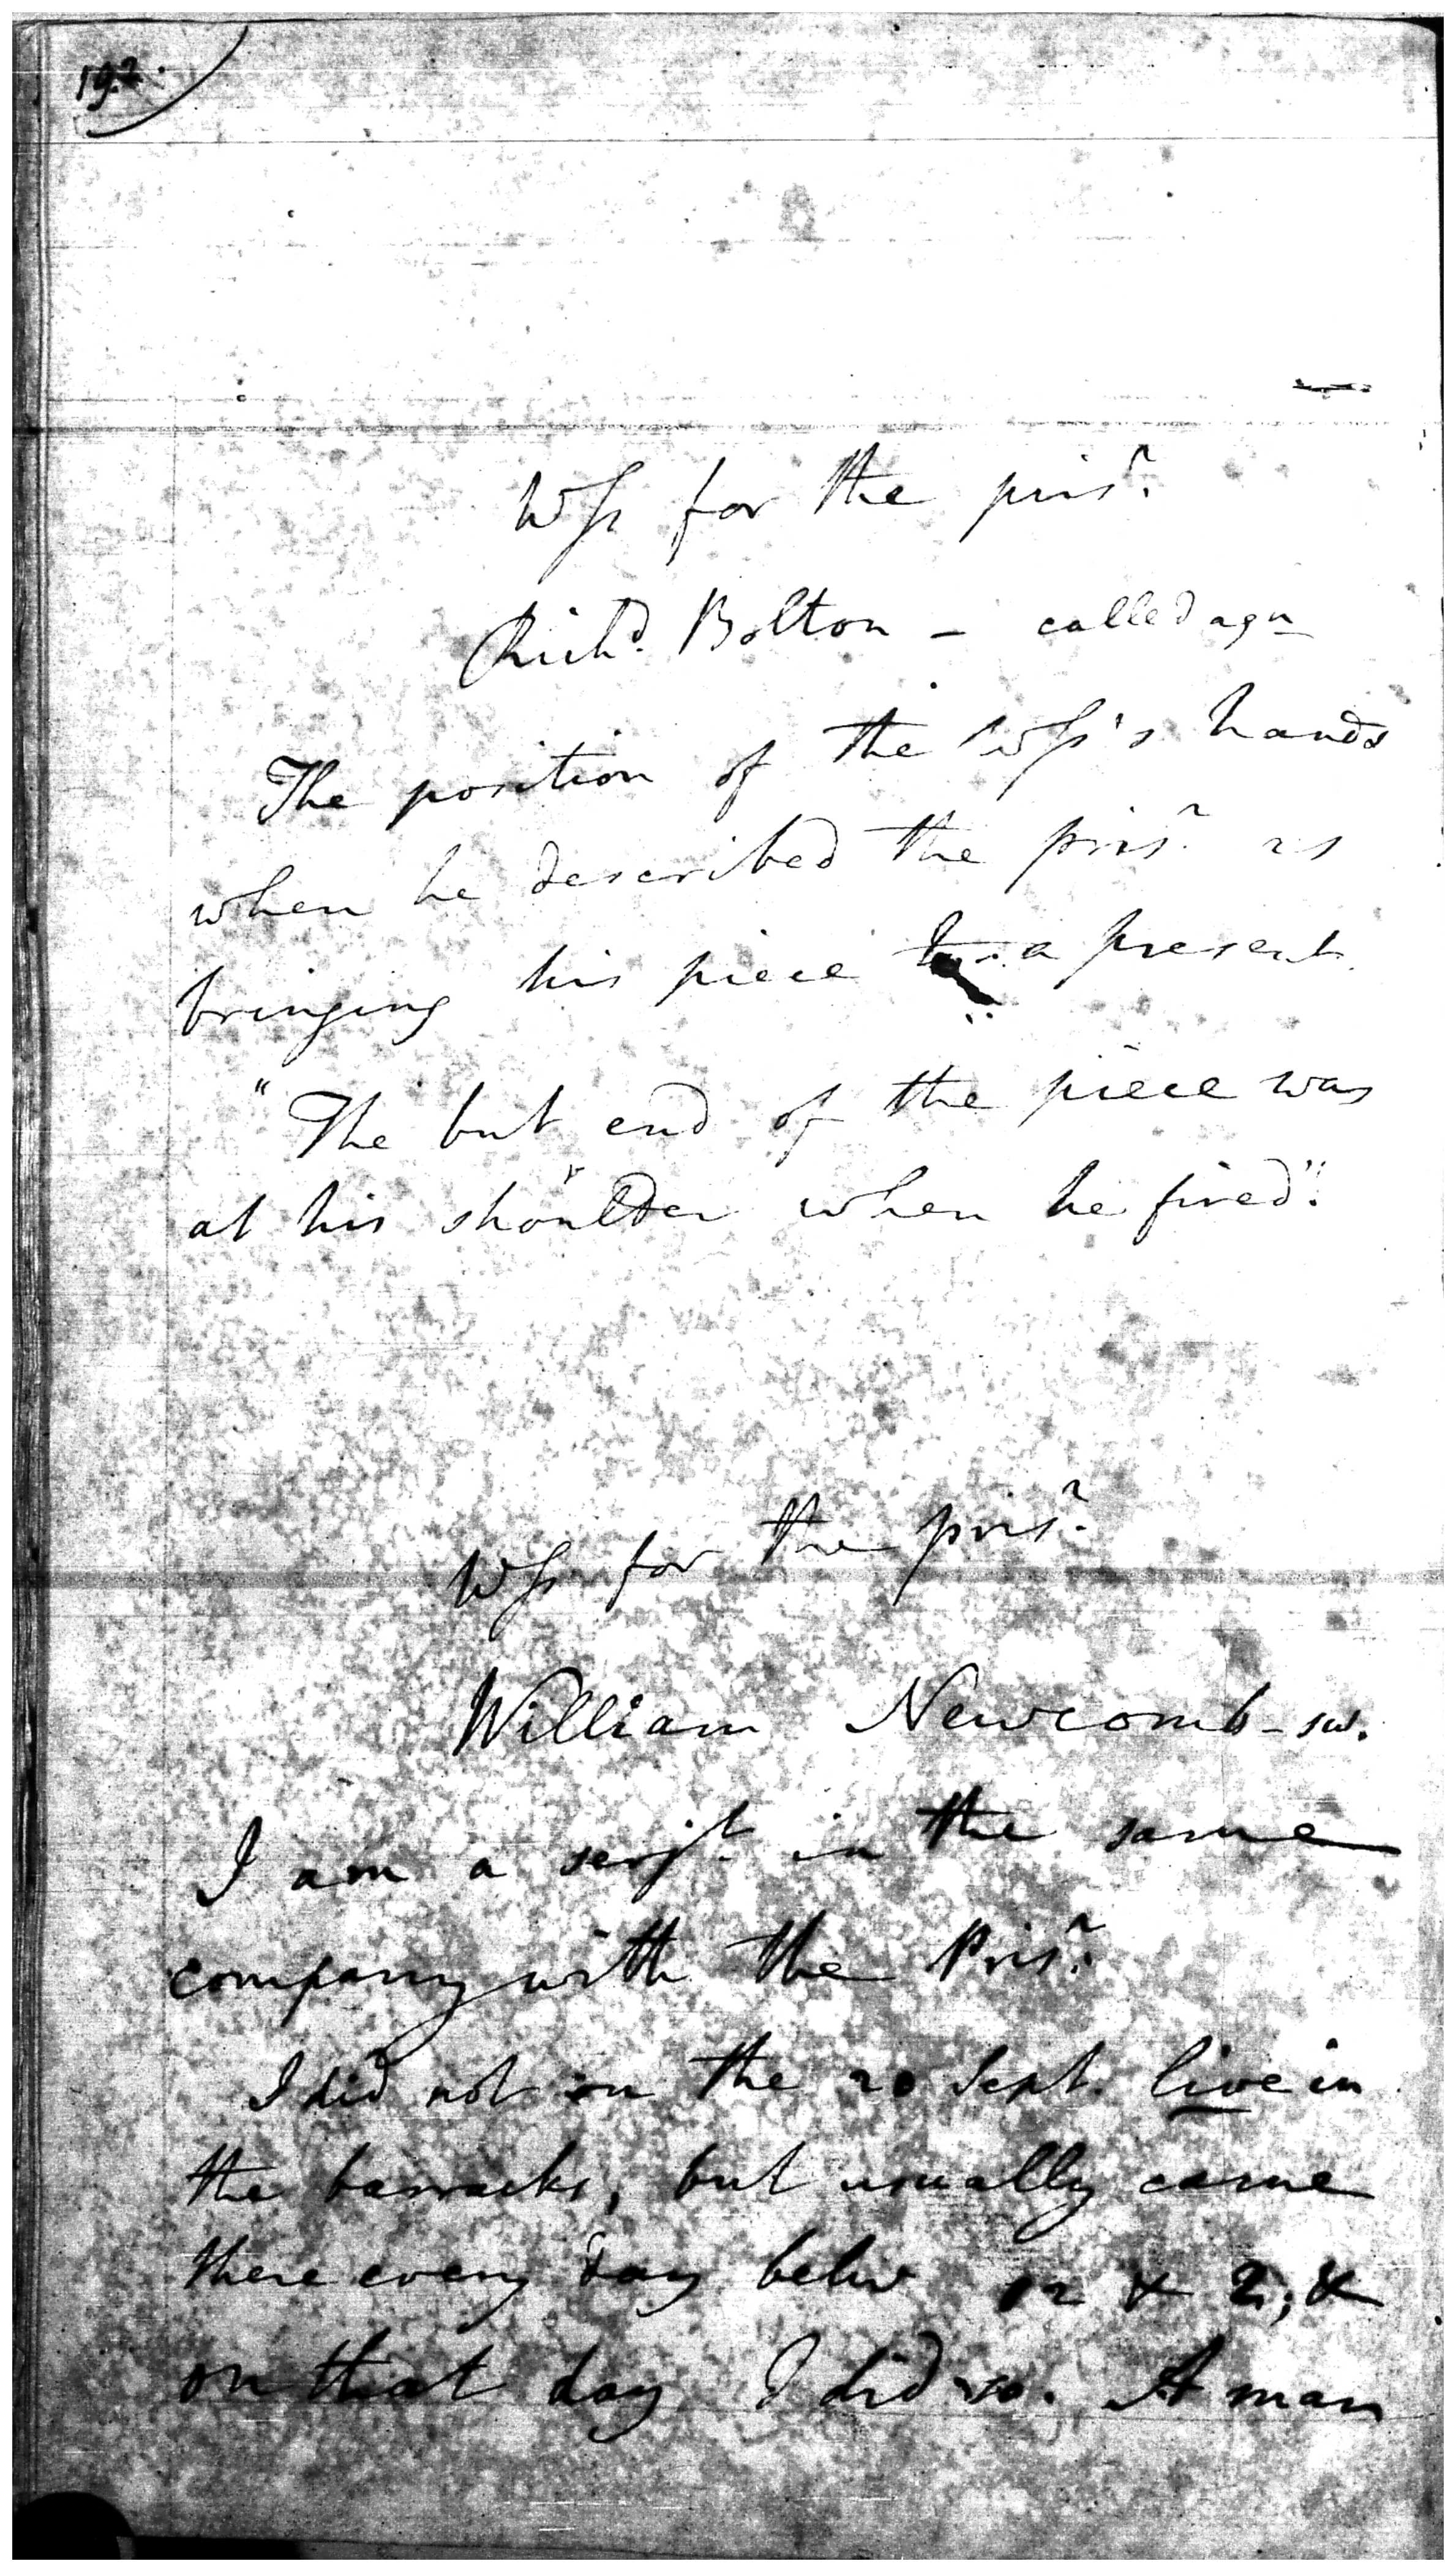 192.
Wss for the prisr.
Richd. Bolton - called agn
The position of the Wss's hands
when he described the prisr. as
bringing his piece to a present.
"The but end of the piece was
at his shoulder when he fired".
Wss for the prisr.
William Newcomb - sw.
I am a serjt. in the same
company with the Prisr.
I did not on the 20 Sept. live in
the barracks, but usually came
there every day betw 12 & 2; &
on that day I did so. A man